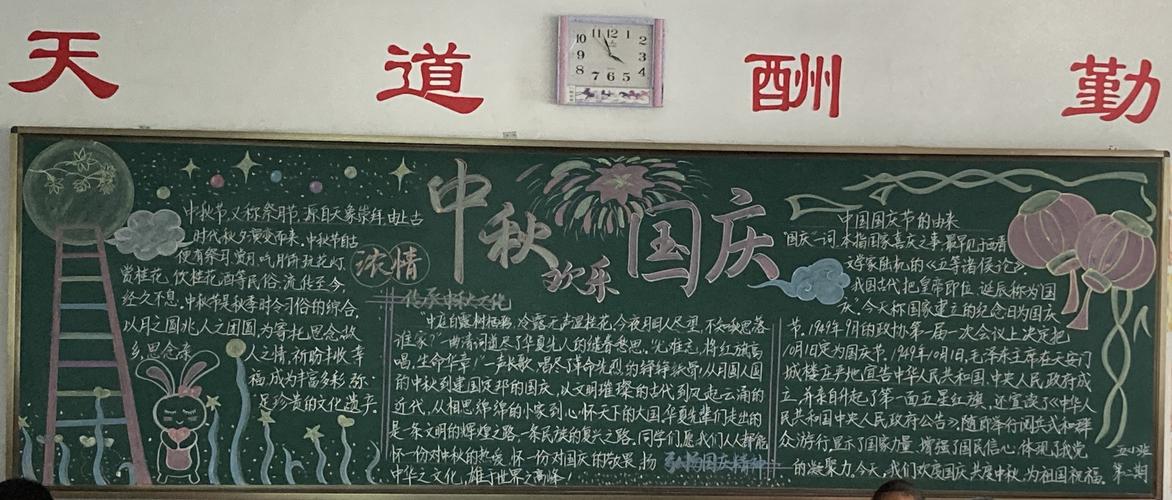 天道酬勤
11 12 1
10 2
9 3
8 4
7 6 5
浓情
中秋
欢乐
国庆
中秋节,又称祭月节,源自天象崇拜,由上古
时代秋夕演变而来.中秋节自古
便有祭月,赏月,吃月饼,玩花灯,
赏桂花,饮桂花酒等民俗,流传至今,
经久不息.中秋节是秋季时令习俗的综合,
以月之圆兆人之团圆为寄托思念故
乡,思念亲人之情,祈盼丰收幸
福,成为丰富多彩,弥
足珍贵的文化遗产.
传承中秋文化
"中庭白露树栖鸦,冷露无声湿桂花,今夜月明人尽望,不知秋思落
谁家?"一曲清词道尽了华夏先人的缱眷愁思."先
生命华章!"一声长歌,唱尽了革命先烈的铮铮铁骨.从月圆人圆
的中秋到建国定邦的国庆,以文明璀璨的古代到风起云涌的
近代,从相思绵绵的小家到心怀天下的大国,华夏先辈们走出的
是一条文明的辉煌之路,一条民族的复兴之路.同学们愿我们人人都能
怀一份对中秋的热爱,怀一份对国庆的敬畏,扬
中华之文化,雄于世界之高峰!
弘扬国庆精神
中国国庆节的由来
"国庆"一词,本指国家喜庆之事,最早见于西晋
文学家陆机的《五等诸侯论》.
我国古代把皇帝即位,诞辰称为"国
庆".今天称国家建立的纪念日为国庆
节.1949年9月的政协第一届一次会议上决定把
10月1日定为国庆节.1949年10月1日,毛泽东主席在天安门
城楼庄严地宣告中华人民共和国,中央人民政府成
立,并亲自升起了第一面五星红旗,还宣读了《中华人
民共和国中央人民政府公告》随即举行阅兵式和群
众游行,显示了国家力量,增强了国民信心,体现了政党
的凝聚力.今天,我们欢度国庆,共度中秋,为祖国祝福.
第二期